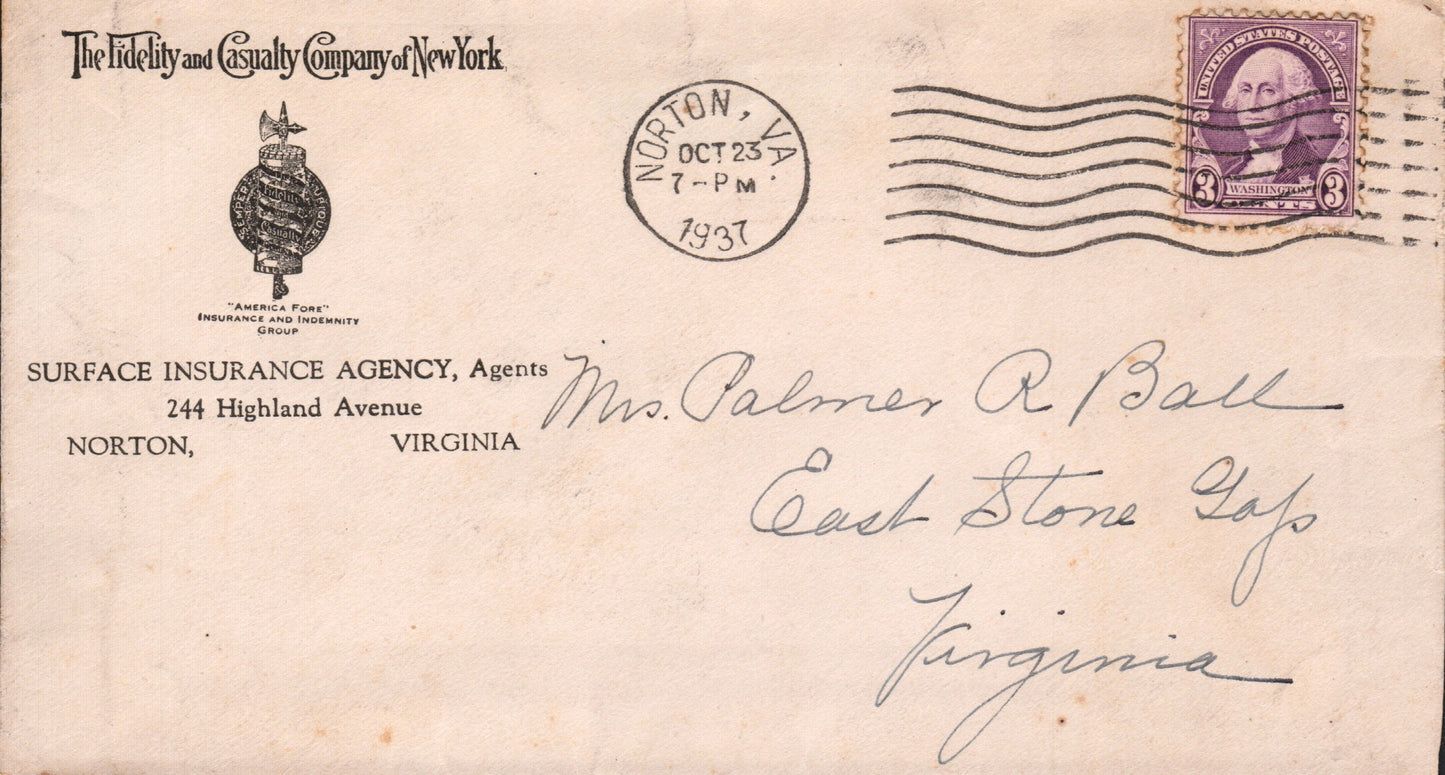 The Fidelity and Casualty Company of New York
SEMPER UBIQUE
Fidelity
Casualty
"AMERICA FORE"
INSURANCE AND INDEMNITY
GROUP
SURFACE INSURANCE AGENCY, Agents
244 Highland Avenue
NORTON, VIRGINIA
NORTON, VA.
OCT 23
7-PM
1937
UNITED STATES POSTAGE
3 WASHINGTON 3
CENTS
Mrs. Palmer R Ball
East Stone Gap
Virginia